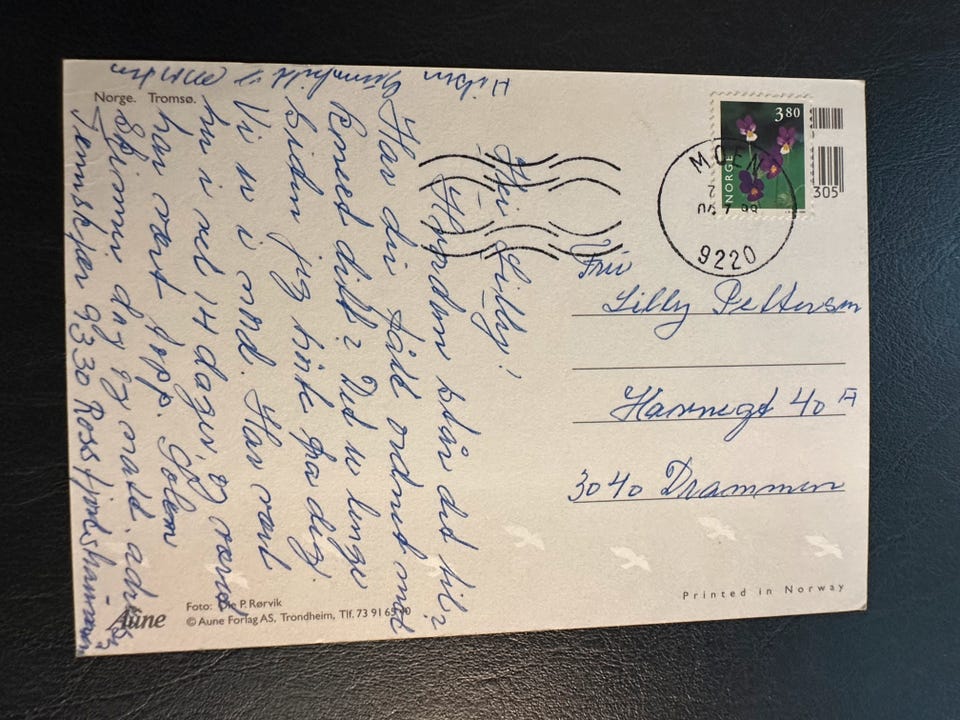 Norge. Tromsø.
Hei Lilly!
Hvordan står det til?
Har du fått ordnet med
ditt? Det er lenge
siden jeg hørte fra deg.
Vi er i nord. Har vært
her i vel 14 dager, og været
har vært topp. Solen
skinner dag og natt. adr.
Tennskjær 9330 Rossfjordstraumen
Hilsen
Gunnhild
NORGE
380
305
MOEN
9220
Fru
Lilly Pettersen
Havnegt 40 A
3040 Drammen
Aune
Foto: Ole P. Rørvik
© Aune Forlag AS, Trondheim, Tlf. 73 91 65
Printed in Norway